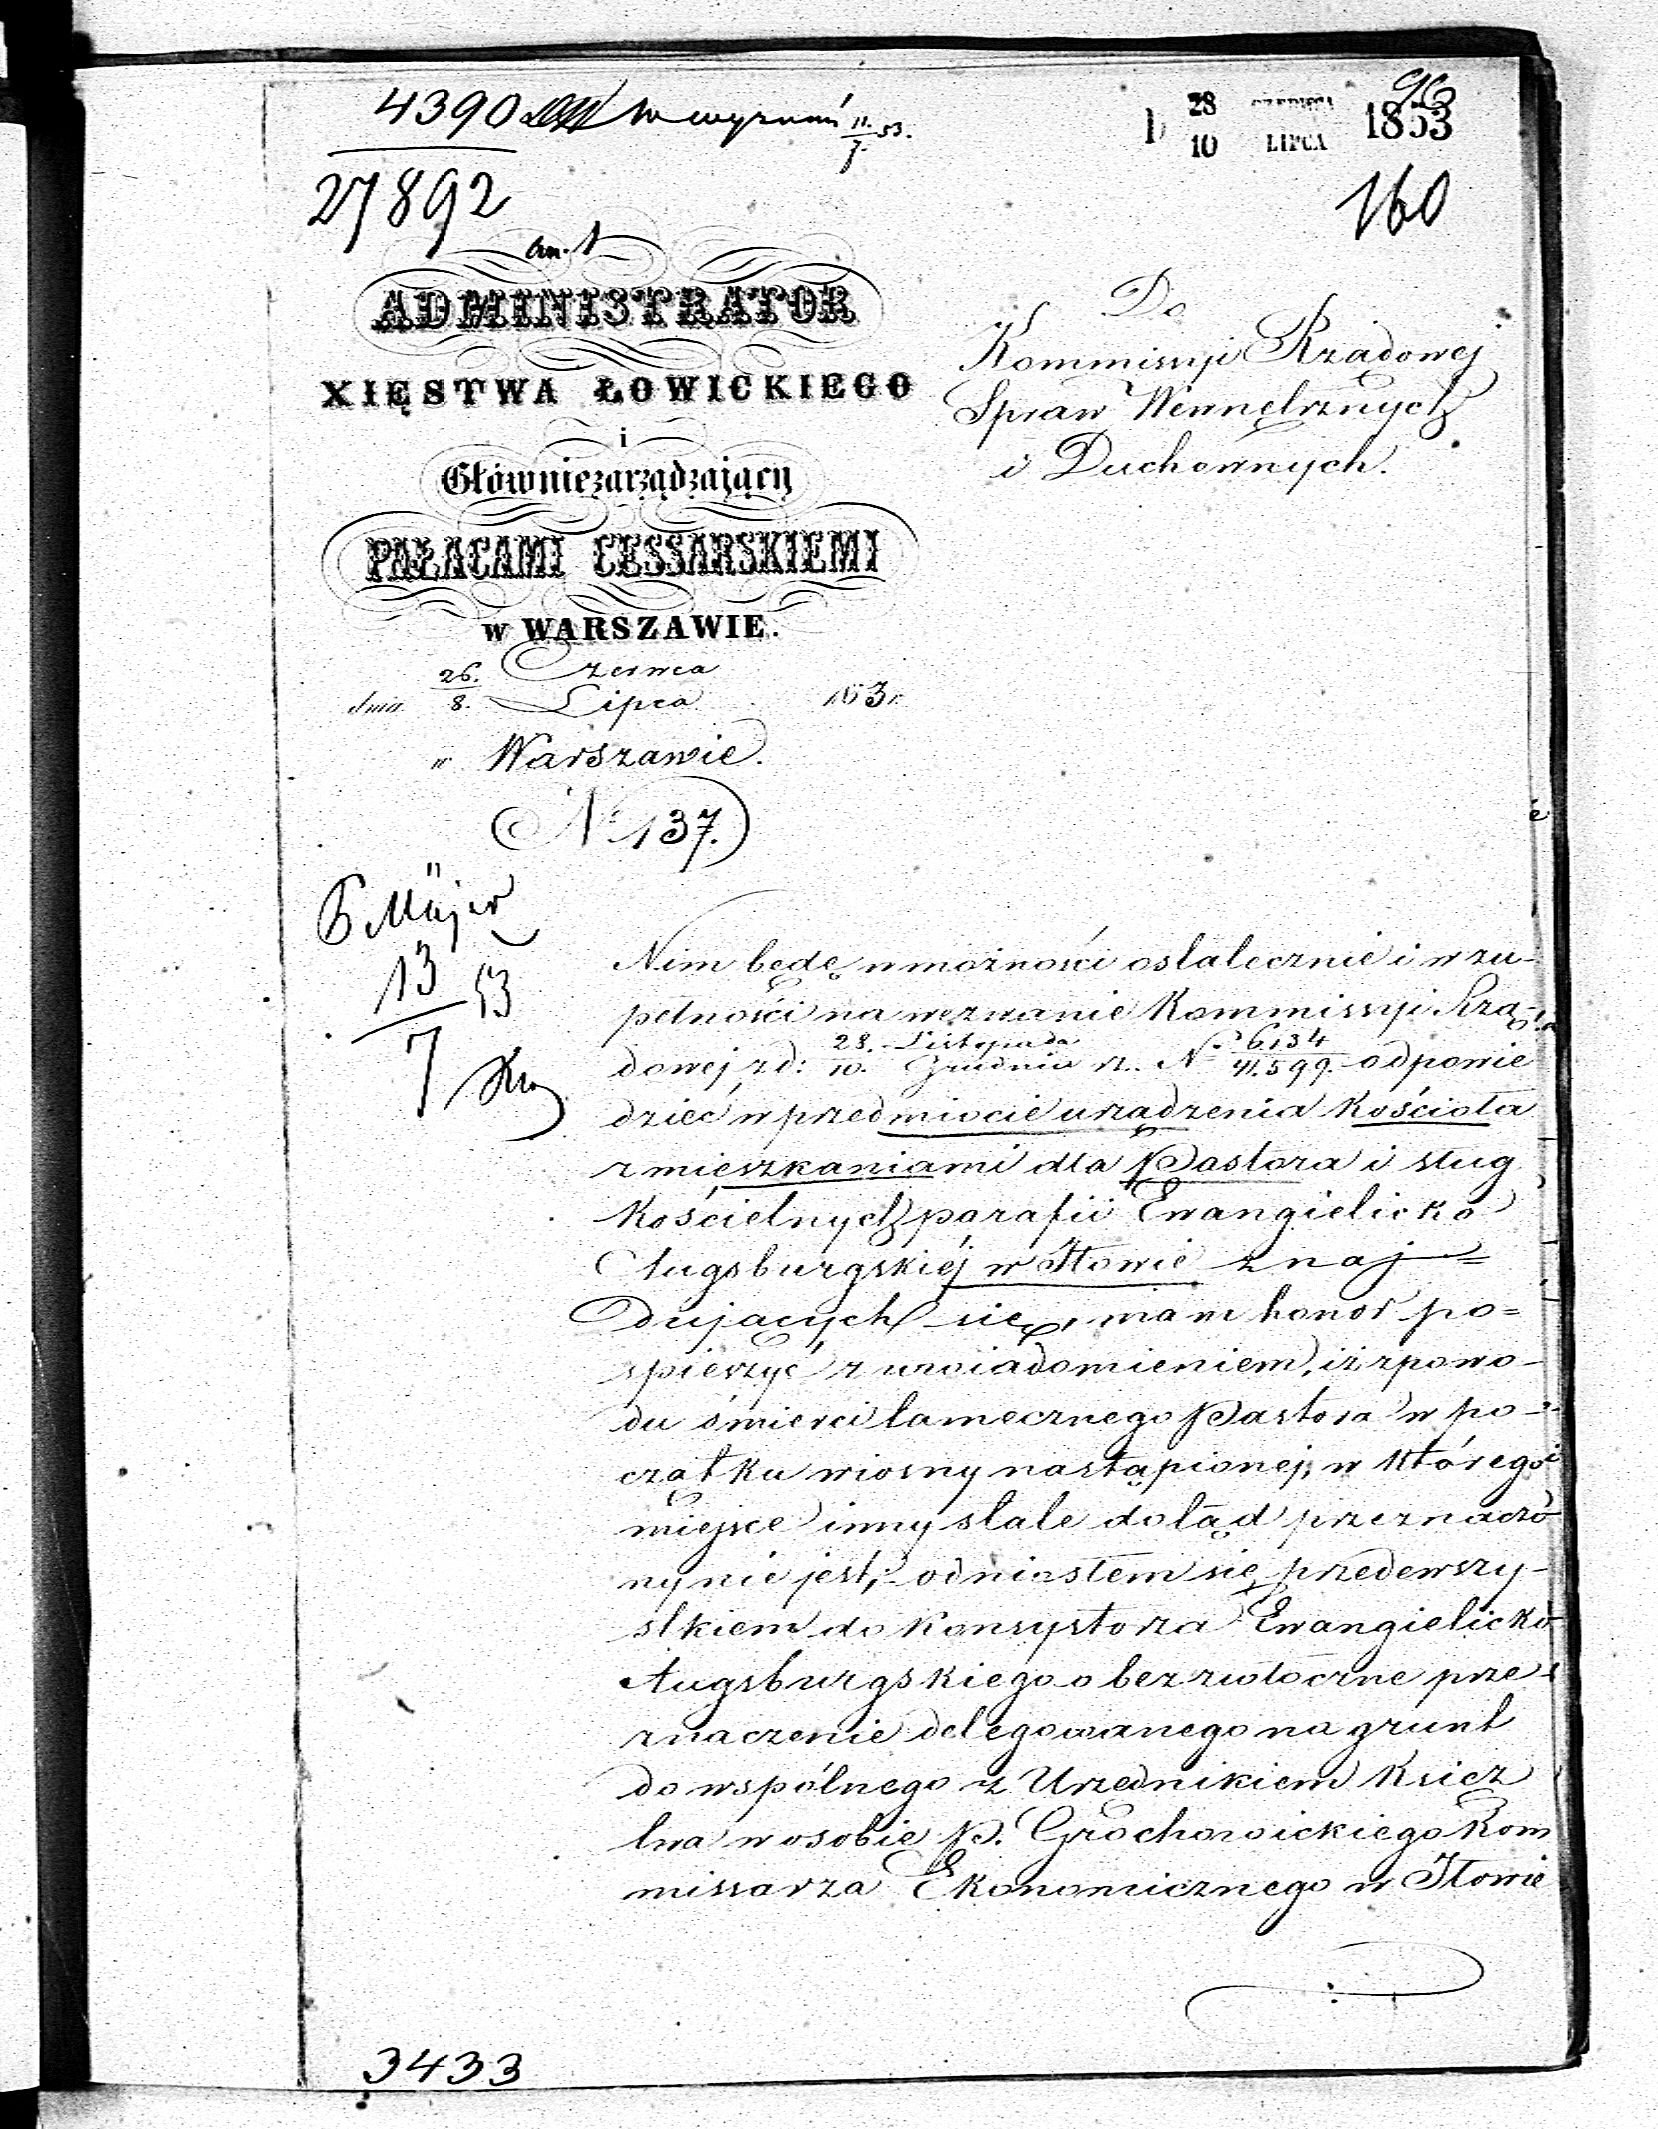 4390 w wyznań 11/7 53.
27892
28 CZERWCA
10 LIPCA 1853
96
160
an. 1
ADMINISTRATOR
XIĘSTWA ŁOWICKIEGO
i
Główniezarządzający
PAŁACAMI CESSARSKIEMI
w WARSZAWIE.
dnia 26. Czerwca
8. Lipca 1853 r.
w Warszawie.
N 137.
Do
Kommissyi Rządowej
Spraw Wewnętrznych
i Duchownych.
13/7 53
Nim będę w możności ostatecznie i w zu-
pełności na wezwanie Kommissyi Rzą-
dowej z d: 28. Listopada / 10. Grudnia r. z. N 6134 / 41.599. odpowie
dzieć w przedmiocie urządzenia Kościoła
z mieszkaniami dla Pastora i sług
Kościelnych parafii Ewangielicko
Augsburgskiéj w Iłowie znaj=
dujących się, mam honor po=
spieszyć z uwiadomieniem, iż z powo-
du śmierci tamecznego Pastora w po-
czątku wiosny nastąpionej, w którego
miejsce inny stale dotąd przeznaczo
ny nie jest, odniosłem się przedewszy-
stkiem do Konsystorza Ewangielicko
Augsburgskiego o bezzwłoczne prze-
znaczenie delegowanego na grunt
do wspólnego z Urzednikiem Księz
twa w osobie P. Grochowickiego Kom
missarza Ekonomicznego w Iłowie
3433